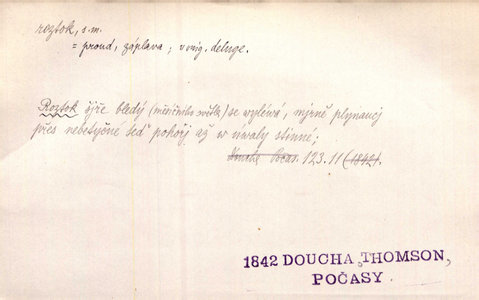 roztok, s.m.
= proud, záplava; v orig. deluge.
Roztok šíře bledý (měsíčního světla) se wylévá, mjrně plynaucj
přes nebetyčné hory až w uwaly stinné;
Doucha Počas. 123.11 (1842).
1842 DOUCHA, THOMSON,
POČASY.